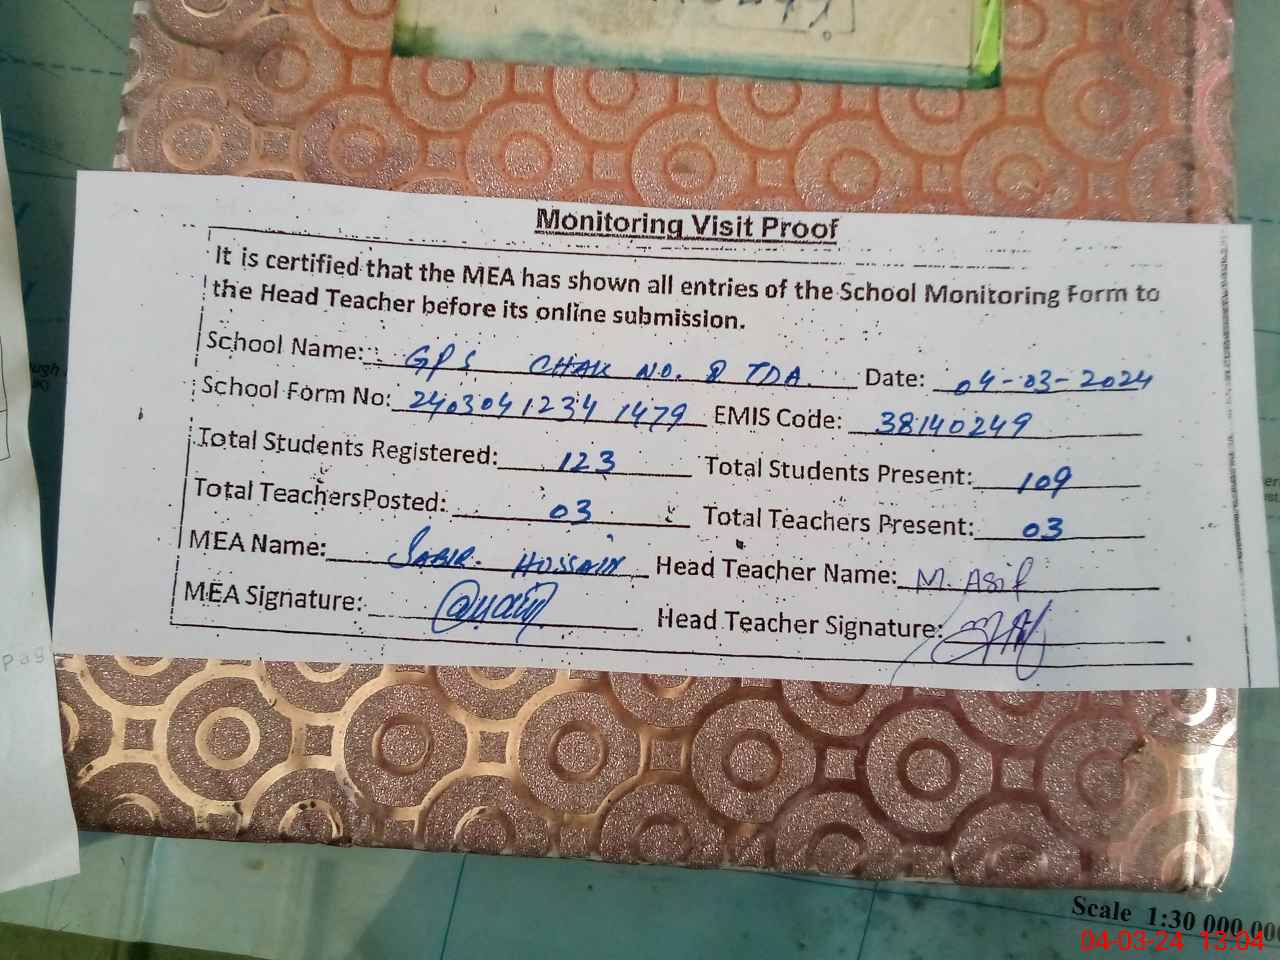 Monitoring Visit Proof
It is certified that the MEA has shown all entries of the School Monitoring Form to
the Head Teacher before its online submission.
School Name: GPS CHAK NO. 8 TDA. Date: 04-03-2024
School Form No: 2403041234 1479 EMIS Code: 38140249
Total Students Registered: 123 Total Students Present: 109
Total TeachersPosted: 03 Total Teachers Present: 03
MEA Name: SABIR. HUSSAIN Head Teacher Name: M. Asif
MEA Signature: Head Teacher Signature:
Scale 1:30 000,000
04-03-24 13:04